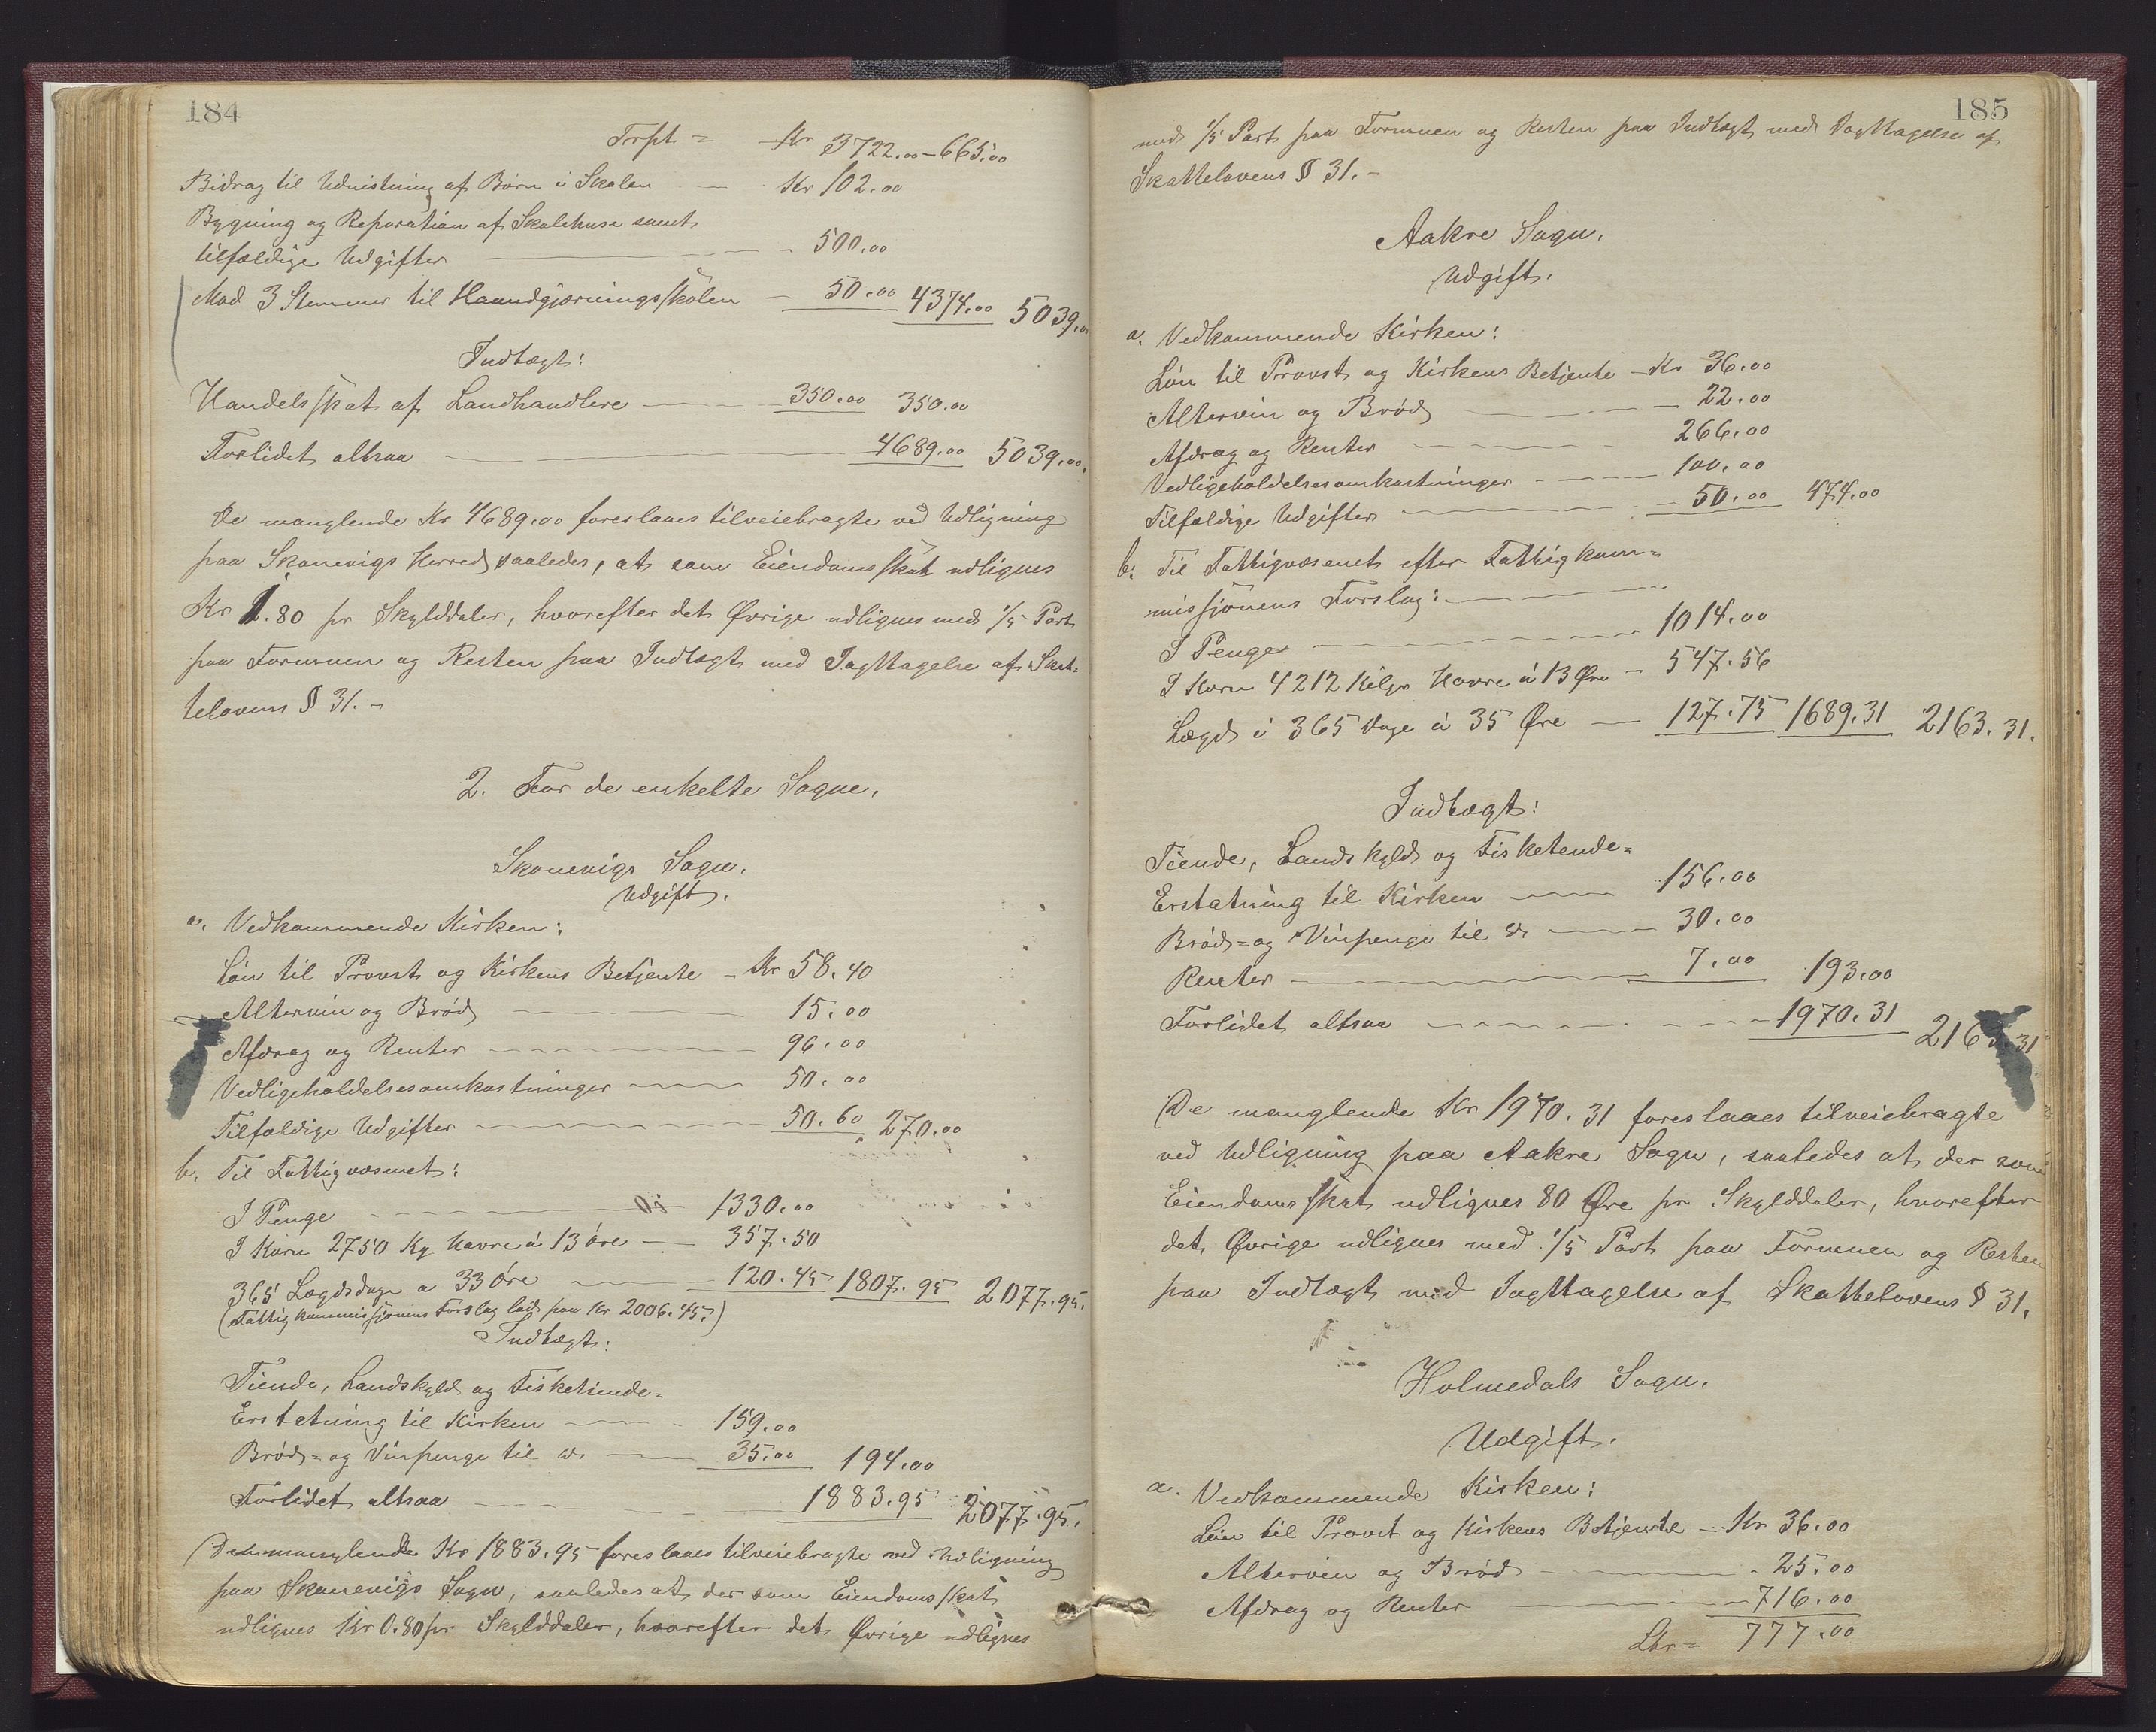 184
Trpt = Kr 3722.00 - 665.00
Bidrag til Udnistning af Børn i Skolen — Kr 102.00
Bygning og Reparation af Skolehuse samt
tilfældige Udgifter — 500.00
Mod 3 Stemmer til Haandgjerningsskolen — 50.00 4374.00 5039.00
Indtægt:
Handelsskat af Landhandlere — 350.00 350.00
Forlidet altsaa — 4689.00 5039.00.
De manglende Kr 4689.00 foreslaaes tilveiebragte ved Udligning
paa Skonevigs Herred saaledes, at som Eiendomsskat udlignes
Kr 1.80 pr Skylddaler, hvorefter det Øvrige udlignes med 1/5 Part
paa Formuen og Resten paa Indtægt med Iagttagelse af Skat-
telovens § 31. -
2. For de enkelte Sogne.
Skonevigs Sogn.
Udgift.
a. Vedkommende Kirken:
Løn til Provst og Kirkens Betjente - Kr 58.40
Altervin og Brød — 15.00
Afdrag og Renter — 96.00
Vedligeholdelsesomkostninger — 50.00
Tilfældige Udgifter — 50.60 270.00
b. Til Fattigvæsenet:
I Penge — 1330.00
I Korn 2750 Kg Havre á 13 øre — 357.50
365 Lægdsdage a 33 Øre — 120.45 1807.95 2077.95.
(Fattigkommissjonens Forslag lød paa Kr 2006.45.)
Indtægt:
Tiende, Landskyld og Fisketiende-
Erstatning til Kirken — 159.00
Brød- og Vinpenge til do — 35.00 194.00
Forlidet altsaa — 1883.95 2077.95.
De manglende Kr 1883.95 foreslaaes tilveiebragte ved Udligning
paa Skonevigs Sogn, saaledes at der som Eiendomsskat
udlignes Kr 0.80 pr Skylddaler, hvorefter det Øvrige udlignes
185
med 1/5 Part paa Formuen og Resten paa Indtægt med Iagttagelse af
Skattelovens § 31. -
Aakre Sogn.
Udgift.
a. Vedkommende Kirken:
Løn til Provst og Kirkens Betjente - Kr 36.00
Altervin og Brød — 22.00
Afdrag og Renter — 266.00
Vedligeholdelsesomkostninger — 100.00
Tilfældige Udgifter — 50.00 474.00
b. Til Fattigvæsenet efter Fattigkom-
missjonens Forslag: —
I Penge — 1014.00
I Korn 4212 Kilgr Havre á 13 Øre — 547.56
Lægd i 365 Dage á 35 Øre — 127.75 1689.31 2163.31.
Indtægt:
Tiende, Landskyld og Fisketende-
Erstatning til Kirken — 156.00
Brød- og Vinpenge til do — 30.00
Renter — 7.00 193.00
Forlidet altsaa — 1970.31 2163.31
De manglende Kr 1970.31 foreslaaes tilveiebragte
ved Udligning paa Aakre Sogn, saaledes at der som
Eiendomsskat udlignes 80 Øre pr Skylddaler, hvorefter
det Øvrige udlignes med 1/5 Part paa Formuen og Resten
paa Indtægt med Iagttagelse af Skattelovens § 31.
Holmedals Sogn.
Udgift.
a. Vedkommende Kirken:
Løn til Provst og Kirkens Betjente — Kr 36.00
Altervin og Brød — 25.00
Afdrag og Renter — 716.00
Ltr = 777.00